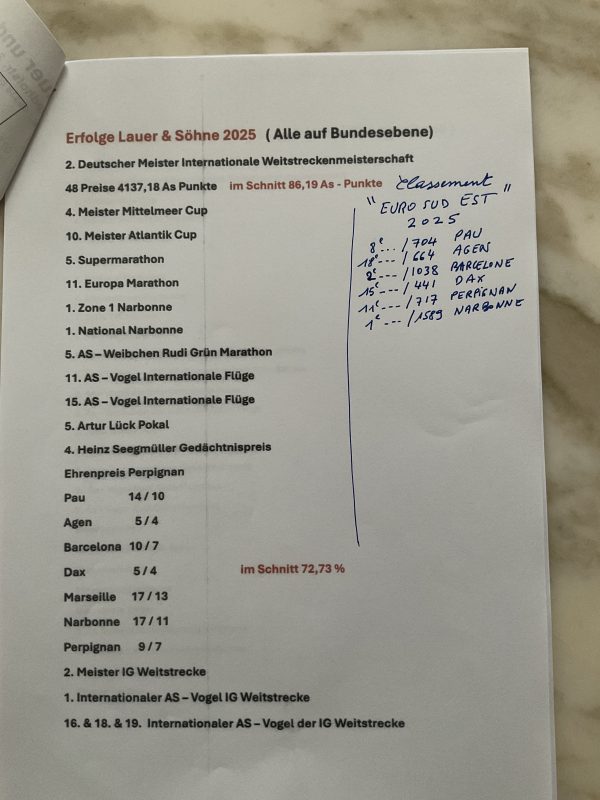 Erfolge Lauer & Söhne 2025 ( Alle auf Bundesebene)
2. Deutscher Meister Internationale Weitstreckenmeisterschaft
48 Preise 4137,18 As Punkte im Schnitt 86,19 As - Punkte
4. Meister Mittelmeer Cup
10. Meister Atlantik Cup
5. Supermarathon
11. Europa Marathon
1. Zone 1 Narbonne
1. National Narbonne
5. AS – Weibchen Rudi Grün Marathon
11. AS – Vogel Internationale Flüge
15. AS – Vogel Internationale Flüge
5. Artur Lück Pokal
4. Heinz Seegmüller Gedächtnispreis
Ehrenpreis Perpignan
Pau 14 / 10
Agen 5 / 4
Barcelona 10 / 7
Dax 5 / 4 im Schnitt 72,73 %
Marseille 17 / 13
Narbonne 17 / 11
Perpignan 9 / 7
2. Meister IG Weitstrecke
1. Internationaler AS – Vogel IG Weitstrecke
16. & 18. & 19. Internationaler AS – Vogel der IG Weitstrecke
Classement
" EURO SUD EST "
2025
8e --- / 704 PAU
18e --- / 664 AGEN
2e --- / 1038 BARCELONE
15e --- / 441 DAX
11e --- / 717 PERPIGNAN
1e --- / 1589 NARBONNE